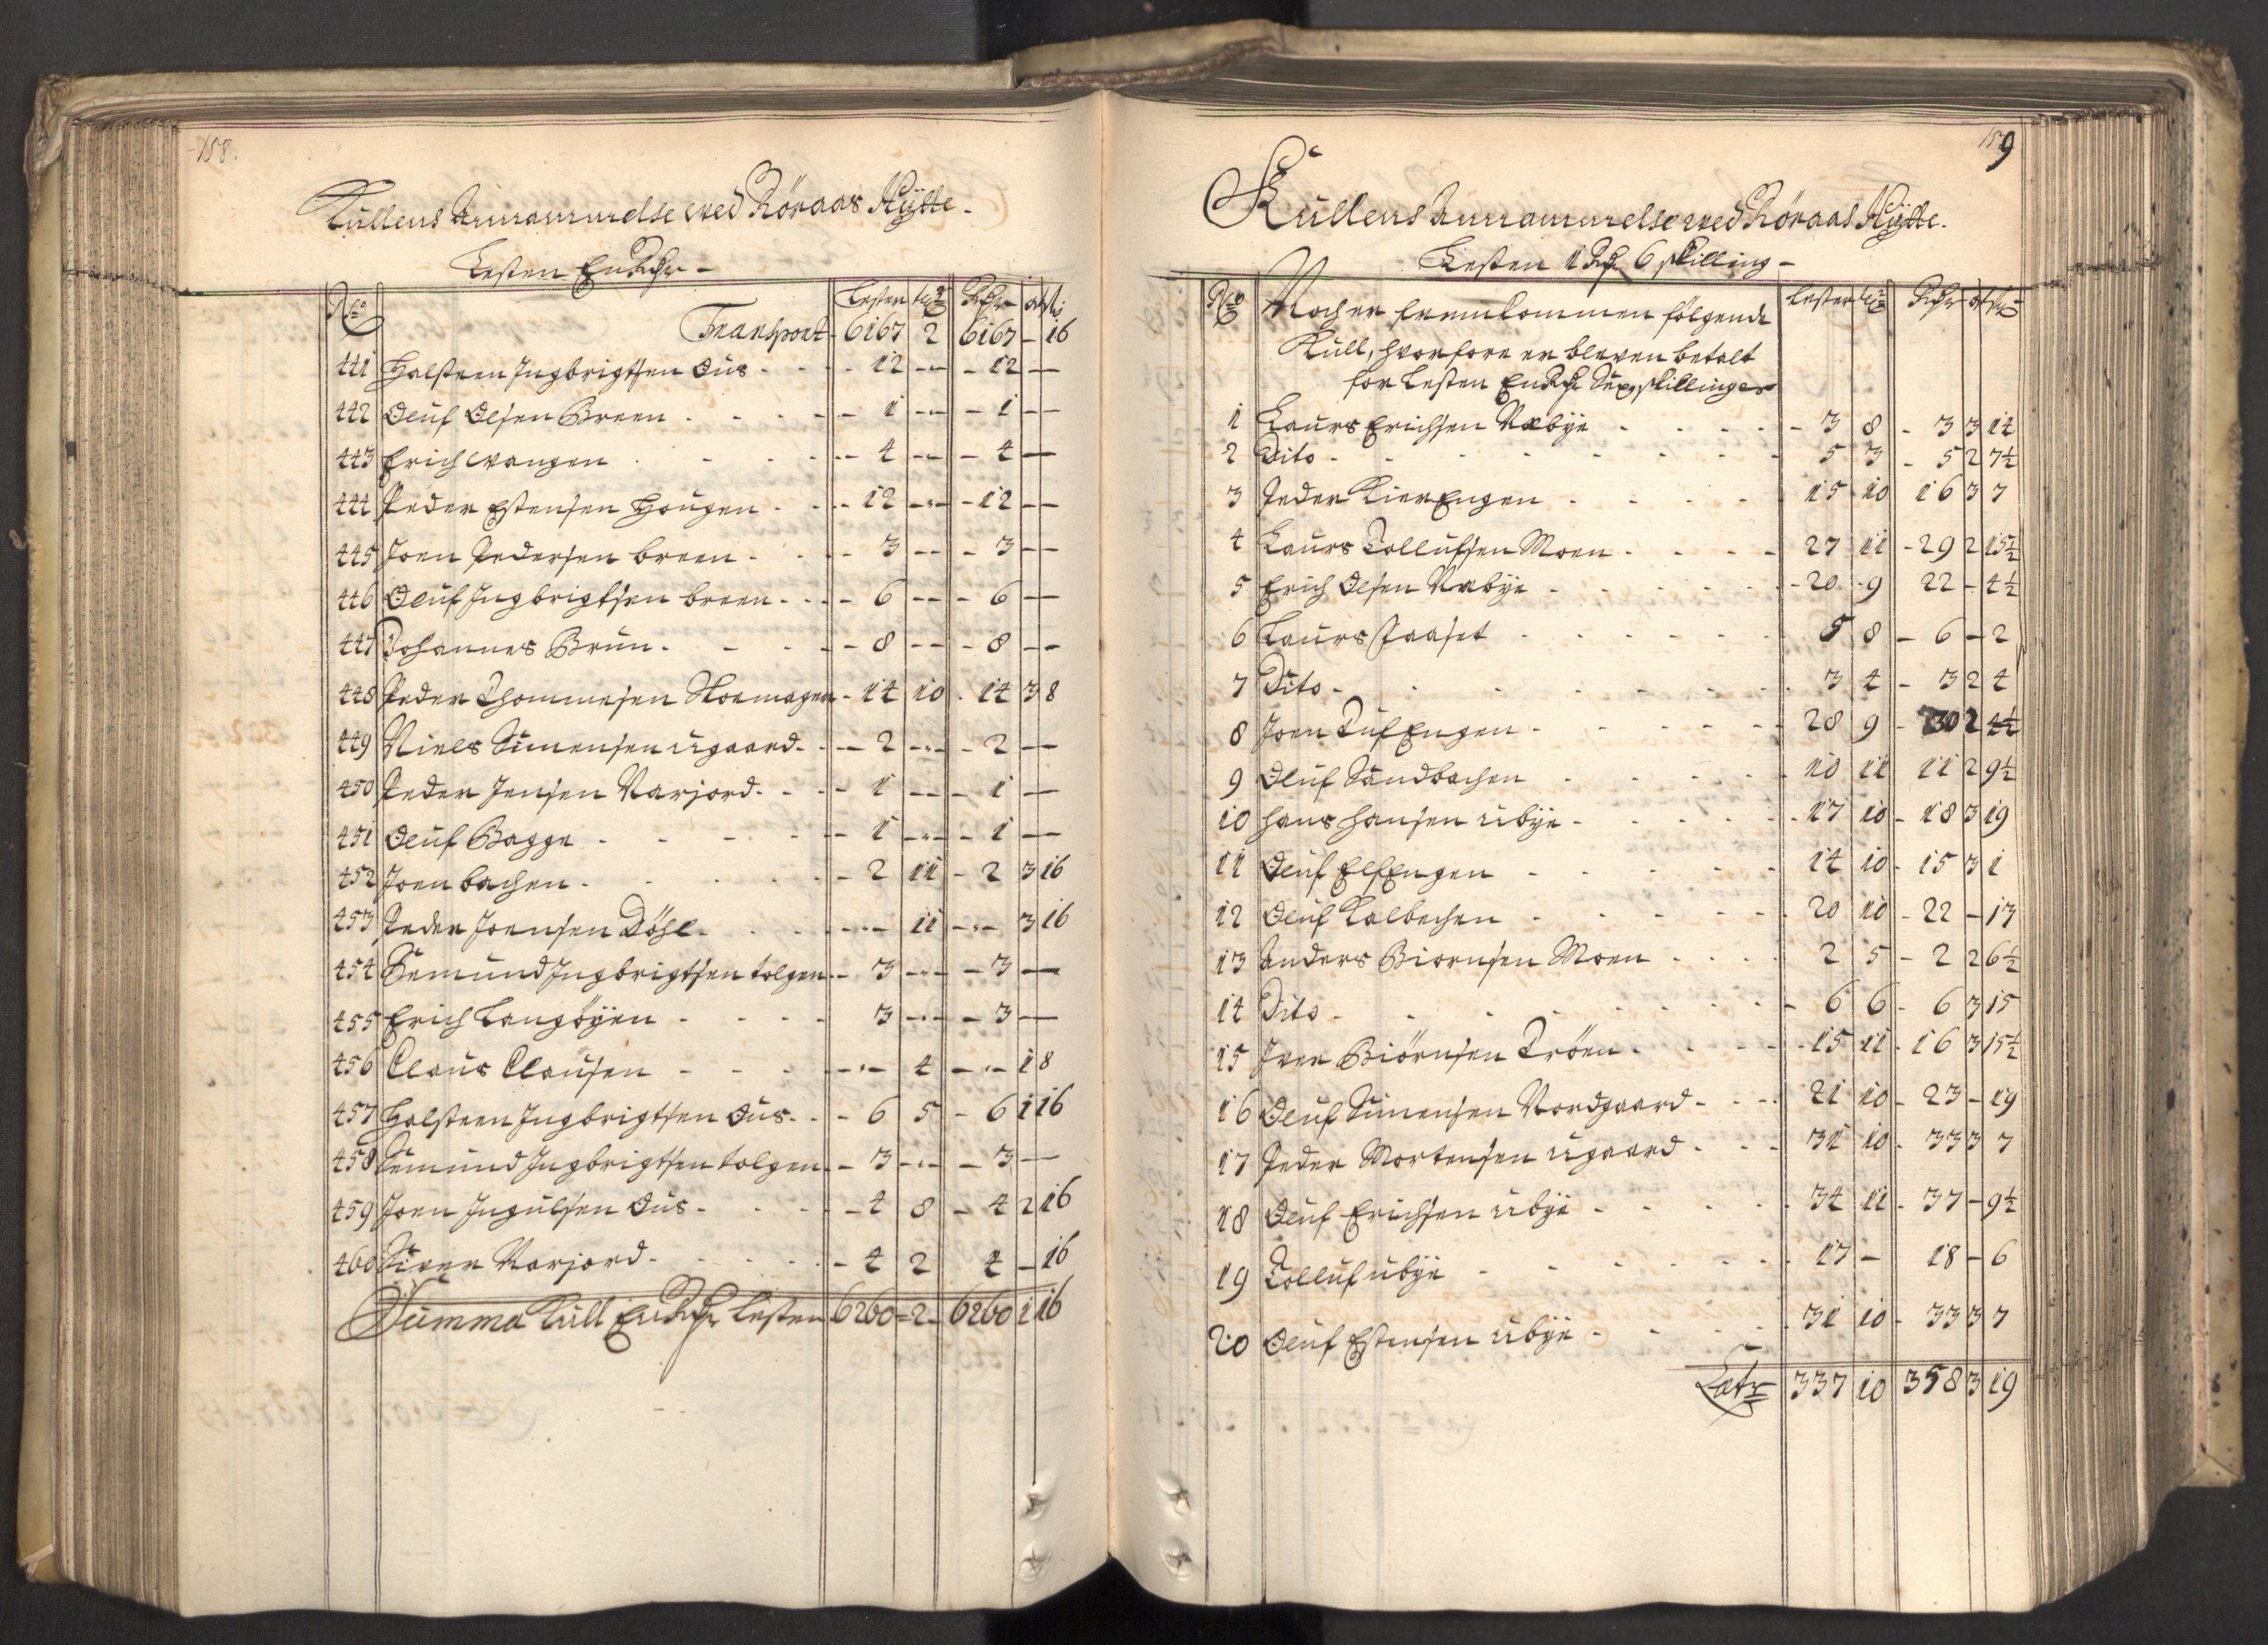 158.
Kullens Annammelse ved Röraas Hytte.
Lesten En Rdr -
No Lester tr Rdr ort sk
Transport - 6167 2 6167 - 16
441 Halsteen Ingbrigtsen Ous - 12 - - 12 -
442 Oluf Olsen Breen - 1 - - 1 - -
443 Erich Wangen - 4 - - 4 -
444 Peder Estensen Hougen - 12 - - 12 - -
445 Joen Pedersen breen - 3 - - 3 - -
446 Oluf Ingbrigtsen breen - 6 - - 6 -
447 Johannes Brun - 8 - - 8 - -
448 Peder Thommesen Skomager - 14 10 - 14 3 8
449 Niels Simensen Ugaard - 2 - - 2 -
450 Peder Jensen Narjord - 1 - - 1 -
451 Oluf Bagge - 1 - - 1 -
452 Joen bachen - 2 11 - 2 3 16
453 Peder Joensen Döhl - 11 - 3 16
454 Semund Ingbrigtsen tolgen - 3 - - 3 -
455 Erich Langöyen - 3 - - 3 -
456 Claus Clausen - 4 - 1 8
457 Halsteen Ingbrigtsen Ous - 6 5 - 6 1 16
458 Semund Ingbrigtsen tolgen - 3 - - 3 -
459 Joen Ingulsen Ous - 4 8 - 4 2 16
460 Siver Narjord - 4 2 4 - 16
Summa Kull En Rdr Lesten 6260 = 2 - 6260 1 16
159
Kullens Annammelse ved Röraas Hytte.
Lesten 1 Rdr 6 skilling -
No Noch er fremkommen fölgende Lester tr Rdr ort sk
Kull, hvorfore er bleven betalt
for Lesten En Rdr Sex skillinger
1 Laurs Erichsen Næbye - 3 8 - 3 3 14
2 Dito - 5 3 - 5 2 7½
3 Peder Kierengen - 15 10 16 3 7
4 Laurs Tollufsen Moen - 27 11 - 29 2 15½
5 Erich Olsen Næbye - 20 - 9 22 - 4½
6 Laurs Paaset - 5 8 - 6 - 2
7 Dito - 3 4 - 3 2 4
8 Joen Tufengen - 28 9 - 30 2 4½
9 Oluf Sandbachen - 10 11 11 2 9½
10 Hans Hansen Ubye - 17 10 - 18 3 19
11 Oluf Elfengen - 14 10 - 15 3 1
12 Oluf Kalbechen - 20 10 - 22 - 13
13 Anders Biornsen Moen - 2 5 - 2 2 6½
14 Dito - 6 6 - 6 3 15
15 Iver Biörnsen Tröen - 15 11 - 16 3 15½
16 Oluf Simensen Nordgaard - 21 10 - 23 - 19
17 Peder Mortensen Ugaard - 31 10 - 33 3 7
18 Oluf Erichsen Ubye - 34 11 - 37 - 9½
19 Tolluf Ubye - 17 - 18 - 6
20 Oluf Estensen Ubye - 31 10 - 33 3 7
Latr 337 10 358 3 19